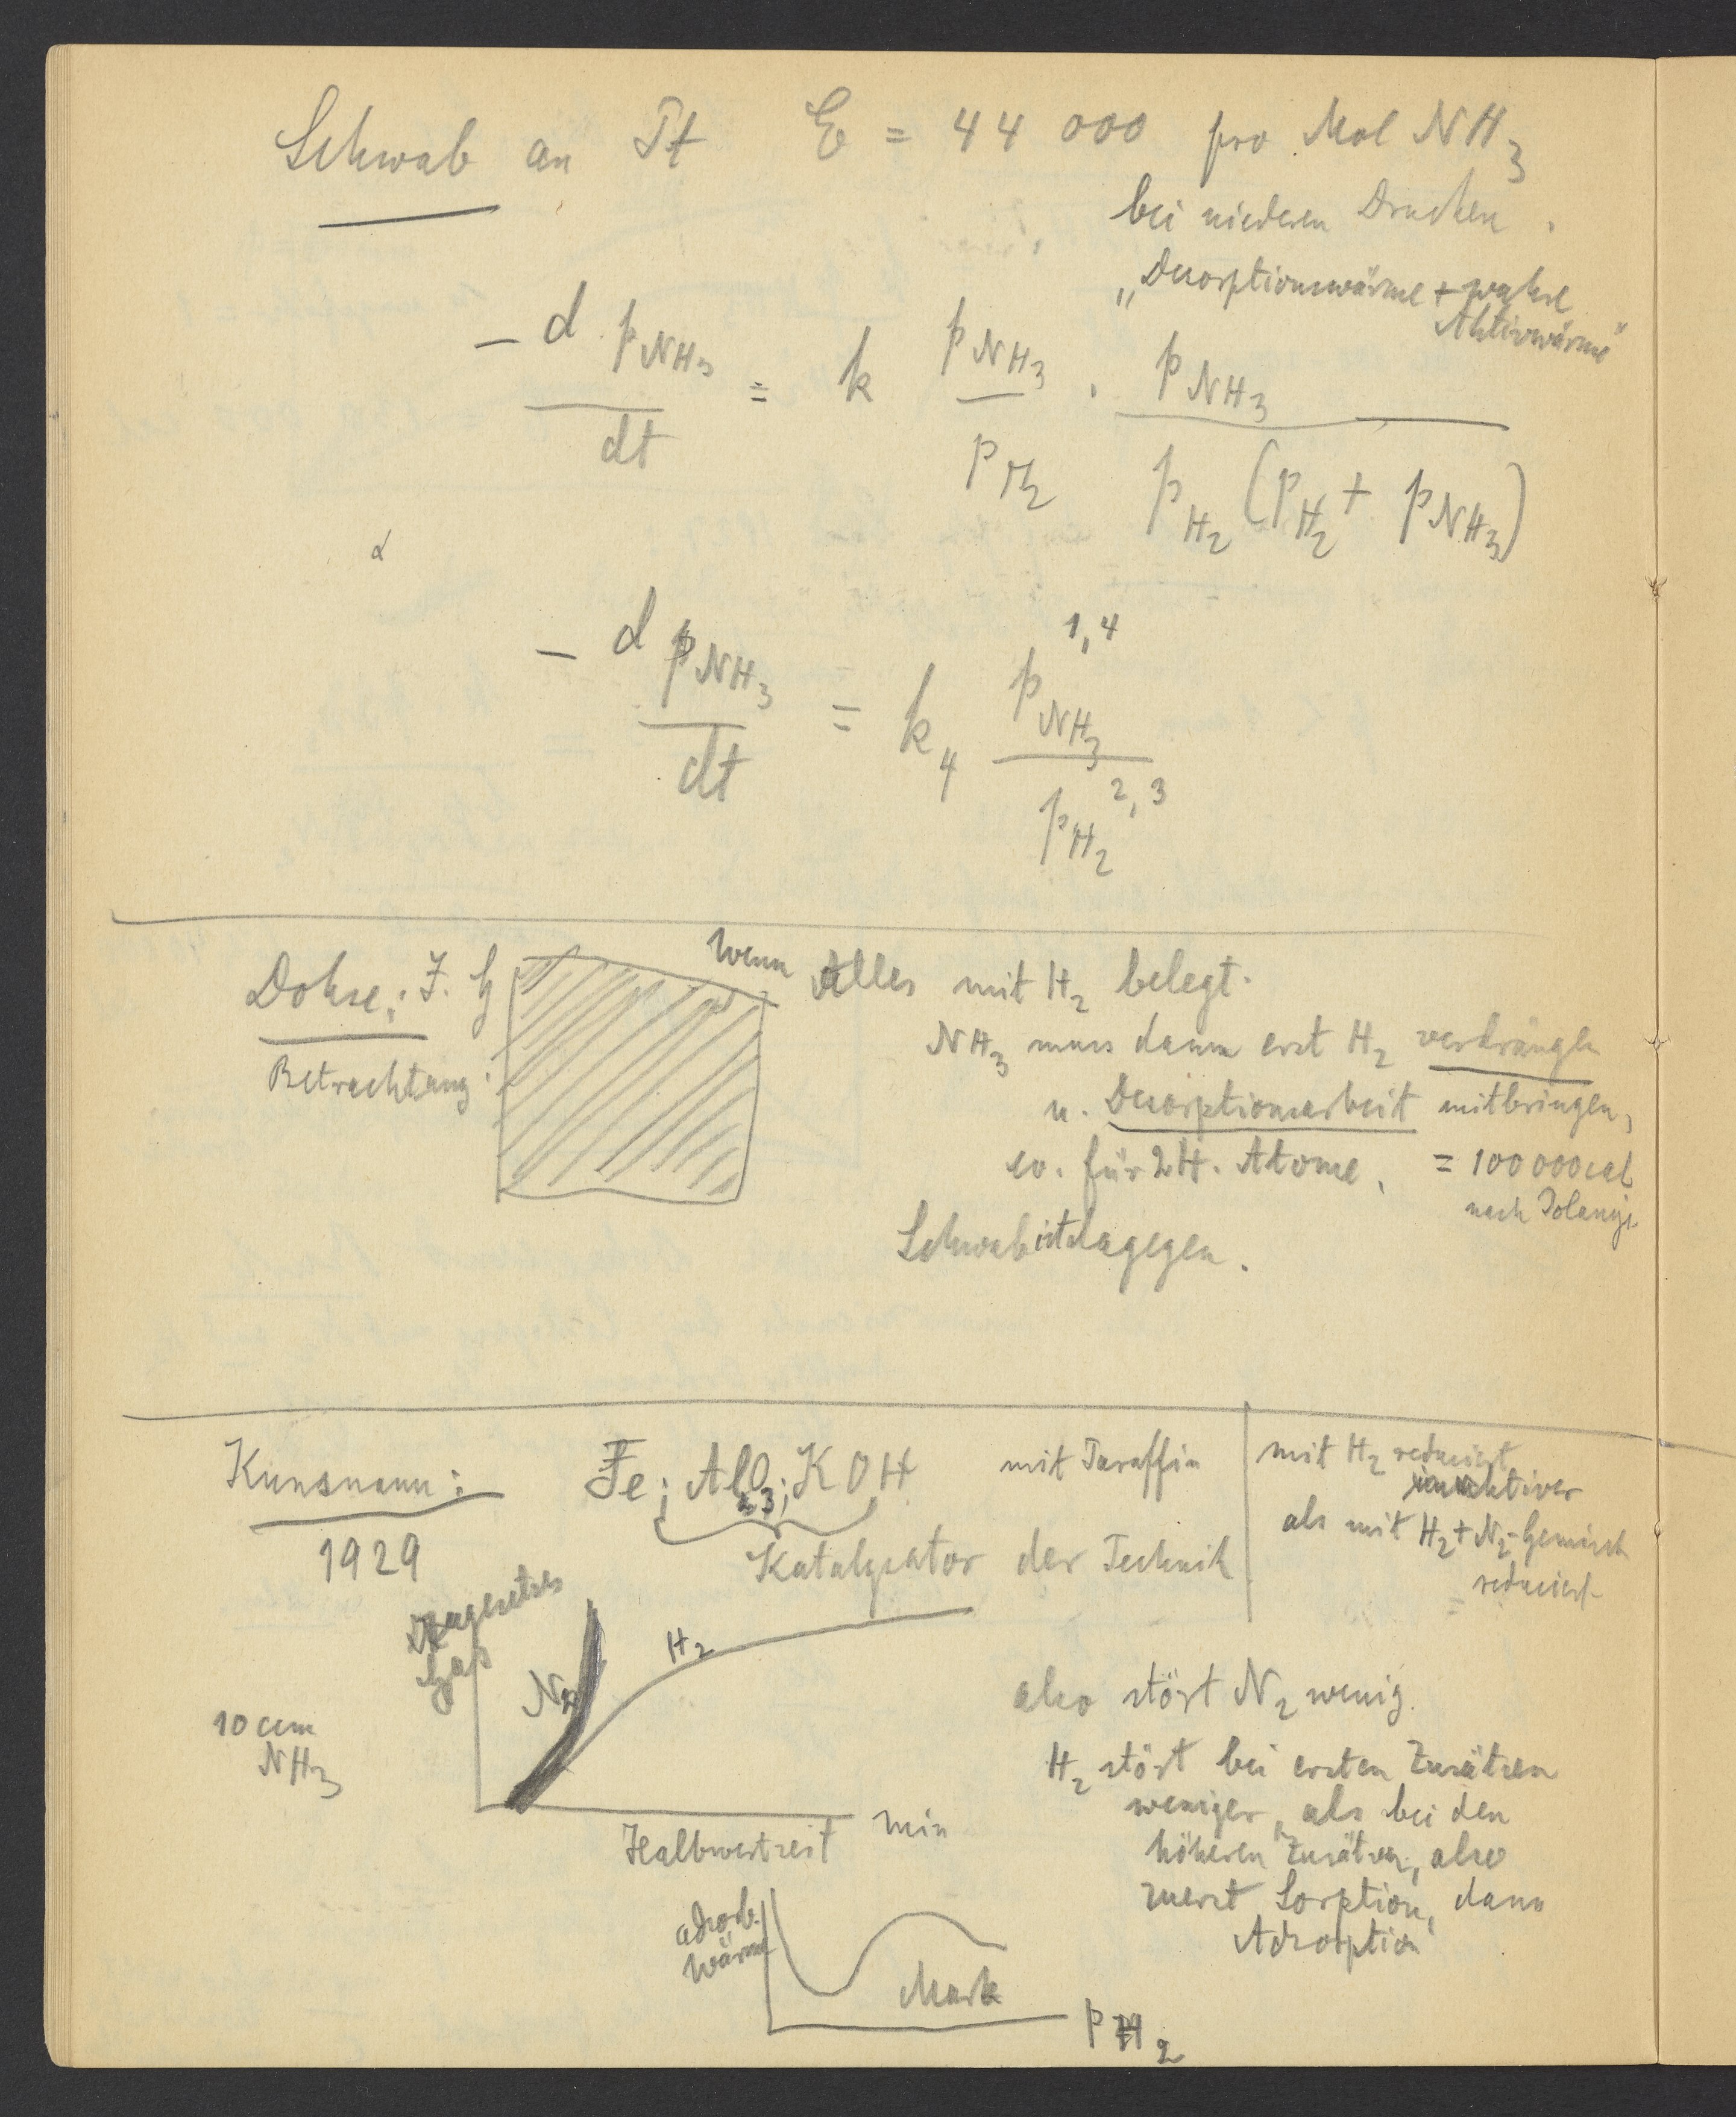 Schwab an Pt E = 44 000 pro Mol NH3
bei niederen Drucken.
„Desorptionswärme + wahre
Aktivwärme"
− d pNH3 / dt = k pNH3 / pH2 · pNH3 / pH2 (pH2 + pNH3)
α
− d pNH3 / dt = k4 pNH3^1,4 / pH2^2,3
Dohse: I. G Wenn Alles mit H2 belegt.
Betrachtung:
NH3 muss dann erst H2 verdrängen
u. Desorptionsarbeit mitbringen,
ev. für 2 H. Atome, = 100 000 cal
nach Polanyi
Schwab ist dagegen.
Kunsmann: Fe; Al2O3; KOH mit Paraffin
1929
Katalysator der Technik
mit H2 reduciert
inaktiver
als mit H2 + N2-Gemisch
reduciert
Zugesetztes
Gas
N2
H2
10 ccm
NH3
Halbwertzeit min
also stört N2 wenig.
H2 stört bei ersten Zusätzen
weniger, als bei den
höheren Zusätzen, also
zuerst Sorption, dann
Adsorption
adsorb.
wärme
Mark
pH2